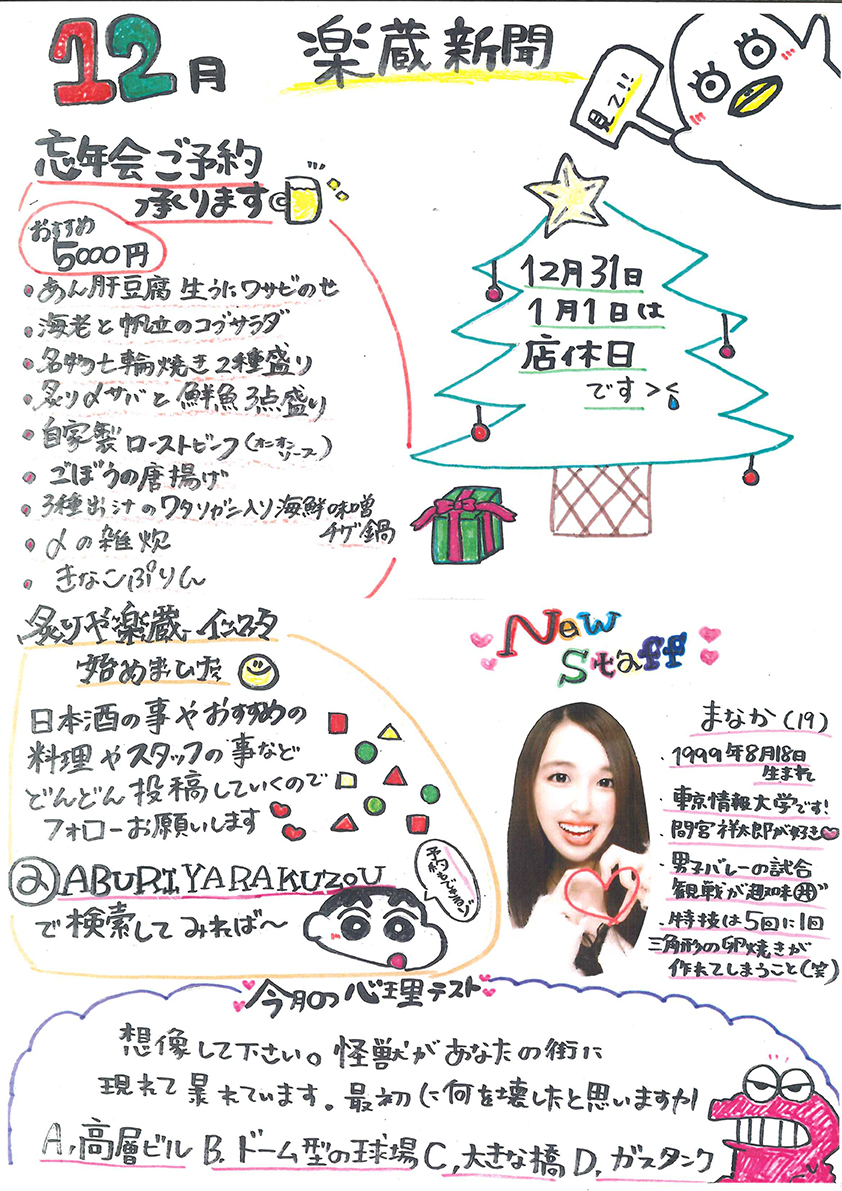 12月
楽蔵新聞
見て!!
忘年会ご予約
承ります
おすすめ
5000円
・あん肝豆腐 生うにワサビのせ
・海老と帆立のコブサラダ
・名物七輪焼き2種盛り
・炙り〆サバと鮮魚3点盛り
・自家製ローストビーフ(オニオンソース)
・ごぼうの唐揚げ
・3種出汁のワタリガニ入り海鮮味噌
チゲ鍋
・〆の雑炊
・きなこぷりん
12月31日
1月1日は
店休日
です><
炙りや楽蔵インスタ
始めました
日本酒の事やおすすめの
料理やスタッフの事など
どんどん投稿していくので
フォローお願いします
@ABURIYARAKUZOU
で検索してみれば〜
New
Staff
まなか(19)
・1999年8月18日
生まれ
・東京情報大学です!
・間宮祥太郎が好き♥
・男子バレーの試合
観戦が趣味
・特技は5回に1回
三角形の卵焼きが
作れてしまうこと(笑)
今月の心理テスト
想像して下さい。怪獣があなたの街に
現れて暴れています。最初に何を壊したと思いますか
A,高層ビル B,ドーム型の球場 C,大きな橋 D,ガスタンク